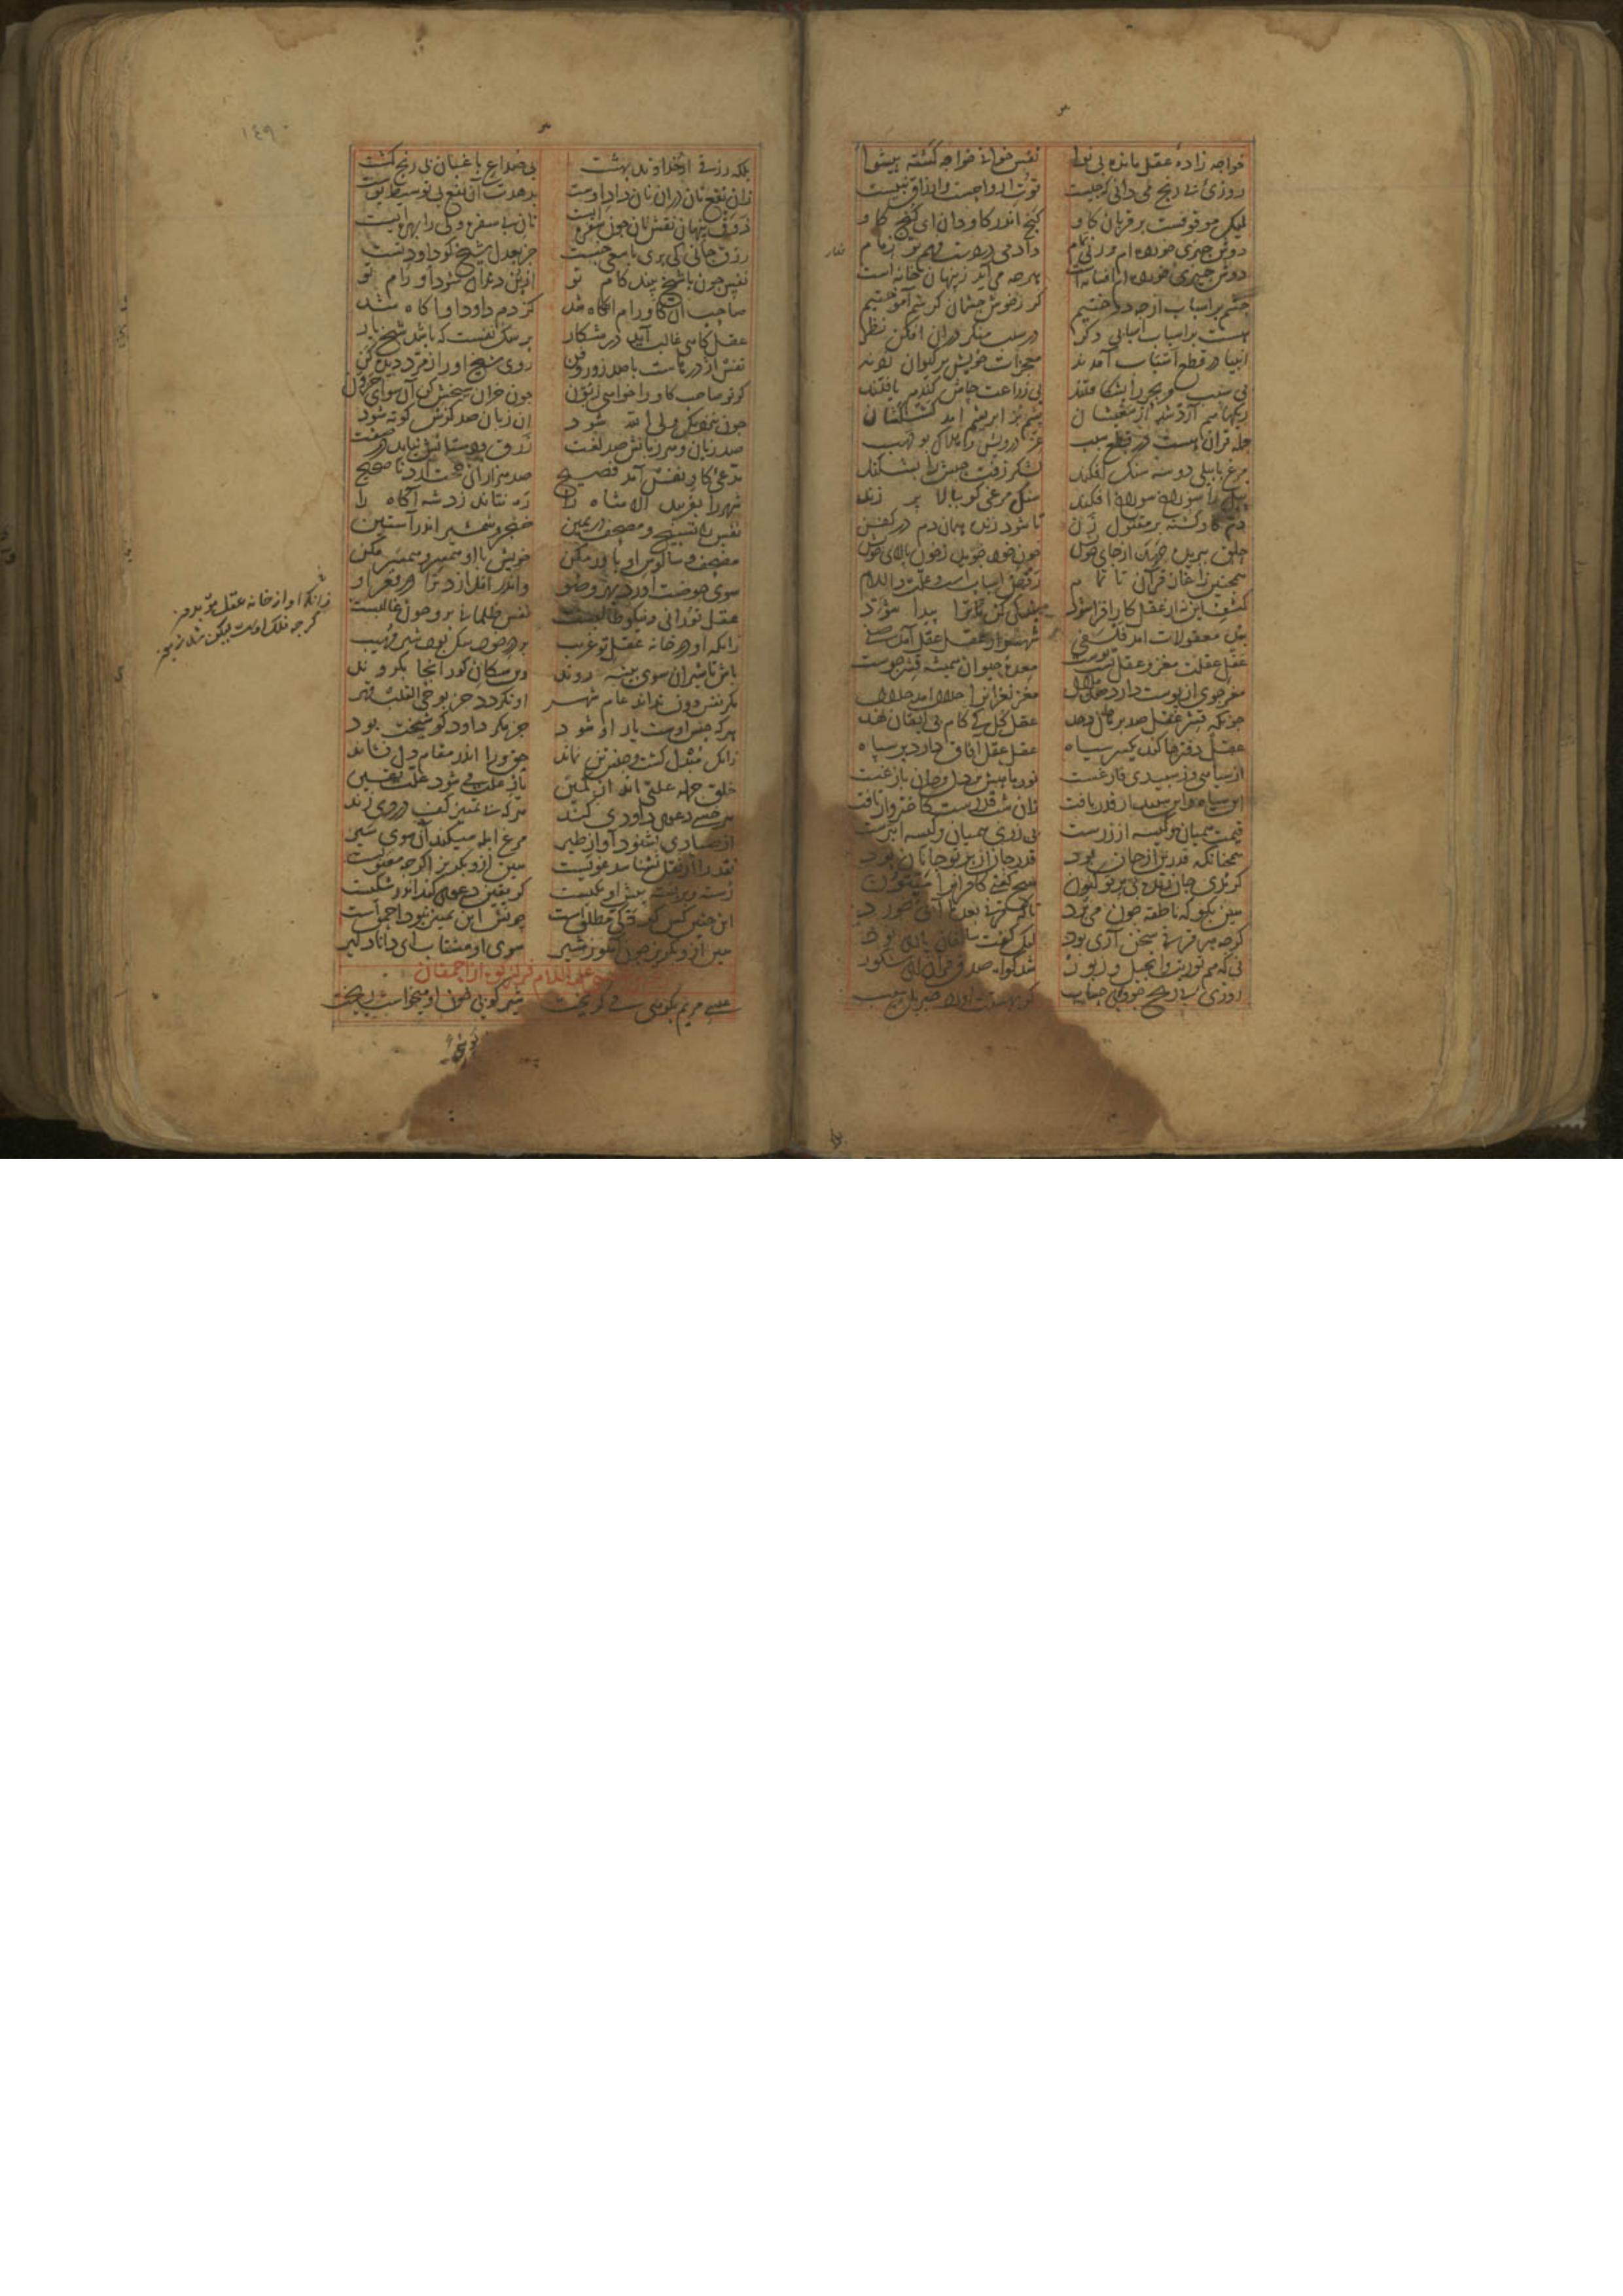 خواجه زادهٔ عقل مانده بی نوا نفس خونی خواجه کشته پیشوا
روزی بی رنج می دانی که جیست قوت ارواحست وارزاق نبیست
لیک موقوفست بر قربان کاو کنج اندر کاو دان ای کنج کاو
دوش جیزی خورده ام ورنی تمام دادمی در دست فهم تو زمام
دوش جیزی خورده ام افسانه است هرجه می آید ز پنهان خانه است
جشم بر اسباب از جه دوختیم کر ز خوش جشمان کرشم آموختیم
هست بر اسباب اسبابی دکر در سبب منکر در ان افکن نظر
انبیا در قطع اسباب آمدند معجزات خویش بر کیوان زدند
بی سبب مر بحر را بشکافتند بی زراعت جاش کندم یافتند
ریکها هم آرد شد از سعیشان پشم بز ابریشم آمد کشکشان
جمله قران هست در قطع سبب عز درویش و هلاک بو لهب
مرغ بابیلی دو سه سنک افکند لشکر زفت حبش را بشکند
پیل را سوراخ سوراخ افکند سنک مرغی کو ببالا پر زند
دم کاو کشته بر مقتول زن تا شود زنده همان دم در کفن
حلق ببریده جهد از جای خویش خون خود جوید ز خون پالای خویش
همجنین ز آغاز قرآن تا تمام رفض اسباب است و علت والسلام
کشف این نه از عقل کار افزا شود بندکی کن تا ترا پیدا شود
بند معقولات آمد فلسفی شهسوار عقل عقل آمد صفی
عقل عقلت مغز و عقل تست پوست معدهٔ حیوان همیشه قشر جوست
مغز جوی از پوست دارد صد ملال مغز نغزان را حلال آمد حلال
جونکه قشر عقل صد برهان دهد عقل کل کی کام بی ایقان نهد
عقل دفترها کند یکسر سیاه عقل عقل آفاق دارد پر ز ماه
از سیاهی وز سپیدی فارغست نور ماهش بر دل و جان بازغست
این سیاه و این سپید ار قدر یافت زان شب قدرست کاختروار تافت
قیمت همیان و کیسه از زرست بی زر ان همیان و کیسه ابترست
همجنانکه قدر تن از جان بود قدر جان از پرتو جانان بود
کر بدی جان زنده بی پرتو کنون هیج کفتی کافران را میتون
هین بکو که ناطقه جو می کند تا بقرنی بعد ما آبی رسد
کرجه هر قرنی سخن آری بود لیک کفت سالفان یاری بود
نی که هم توریة وانجیل و زبور شد کواه صدق قرآن ای شکور
روزی بی رنج جو و بی حساب کز بهشتت آورد جبریل سیب
بلکه رزقی از خداوند بهشت بی صداع باغبان بی رنج کشت
زانکه نفع نان در ان نان داد اوست بدهدت آن نفع بی توسیط پوست
ذوق پنهان نقش نان جون سفره ایست نان بی سفره ولی را بهره ایست
رزق جانی کی بری با سعی و جست جز بعدل شیخ کو داود تست
نفس جون با شیخ بیند کام تو از بن دندان شود او رام تو
صاحب آن کاو رام انکاه شد کز دم داود او آکاه شد
عقل کاهی غالب آید در شکار بر سک نفست که باشد شیخ یار
نفس اژدرهاست با صد زور و فن روی شیخ او را زمرد دیده کن
کر تو صاحب کاو را خواهی زبون جون خران سیخش کن آن سو ای حرون
جون بنزدیک ولی الله شود ان زبان صد کزش کوته شود
صد زبان و هر زبانش صد لغت زرق و دستانش نیاید در صفت
مدعی کاو نفس آمد فصیح صد هزاران حجت آرد ناصحیح
شهر را بفریبد الا شاه را ره نتاند زد شه آکاه را
نفس را تسبیح و مصحف در یمین خنجر و شمشیر اندر آستین
مصحف و سالوس او باور مکن خویش با او همسر و همسر مکن
سوی حوضت آورد بهر وضو واندر اندازد ترا در قعر او
عقل نورانی و نیکو طالبست نفس ظلمانی برو جون غالبست
زانکه او در خانه عقل تو غریب بر در خود سک بود شیر مهیب
باش تا شیران سوی بیشه روند وین سکان کور آنجا بکروند
مکر نفس و تن نداند عام شهر او نکردد جز بوحی القلب قهر
هرکه جنس اوست یار او شود جز مکر داود کو شیخت بود
زانکه مبدل کشت و جنس تن نماند حق ورا اندر مقام دل نشاند
خلق جمله علتی اند از کمین یار علت می شود علت یقین
هر خسی دعوی داودی کند هرکه بی تمییز کف در وی زند
از صیادی بشنود آواز طیر مرغ ابله میکند آن سوی سیر
نقد را از نقل نشناسد غویست هین ازو بکریز اکرجه معنویست
رسته و بربسته پیش او یکیست کر یقین دعوی کند او در شکیست
این جنین کس کر ذکی مطلق است جونش این تمییز نبود احمق است
هین ازو بکریز جون آهو ز شیر سوی او مشتاب ای دانا دلیر
علیه السلام از احمقان
عیسی مریم بکوهی می کریخت شیر کویی خون او میخواست ریخت
زانکه او از خانه عقل تو بدور
۱٤۹